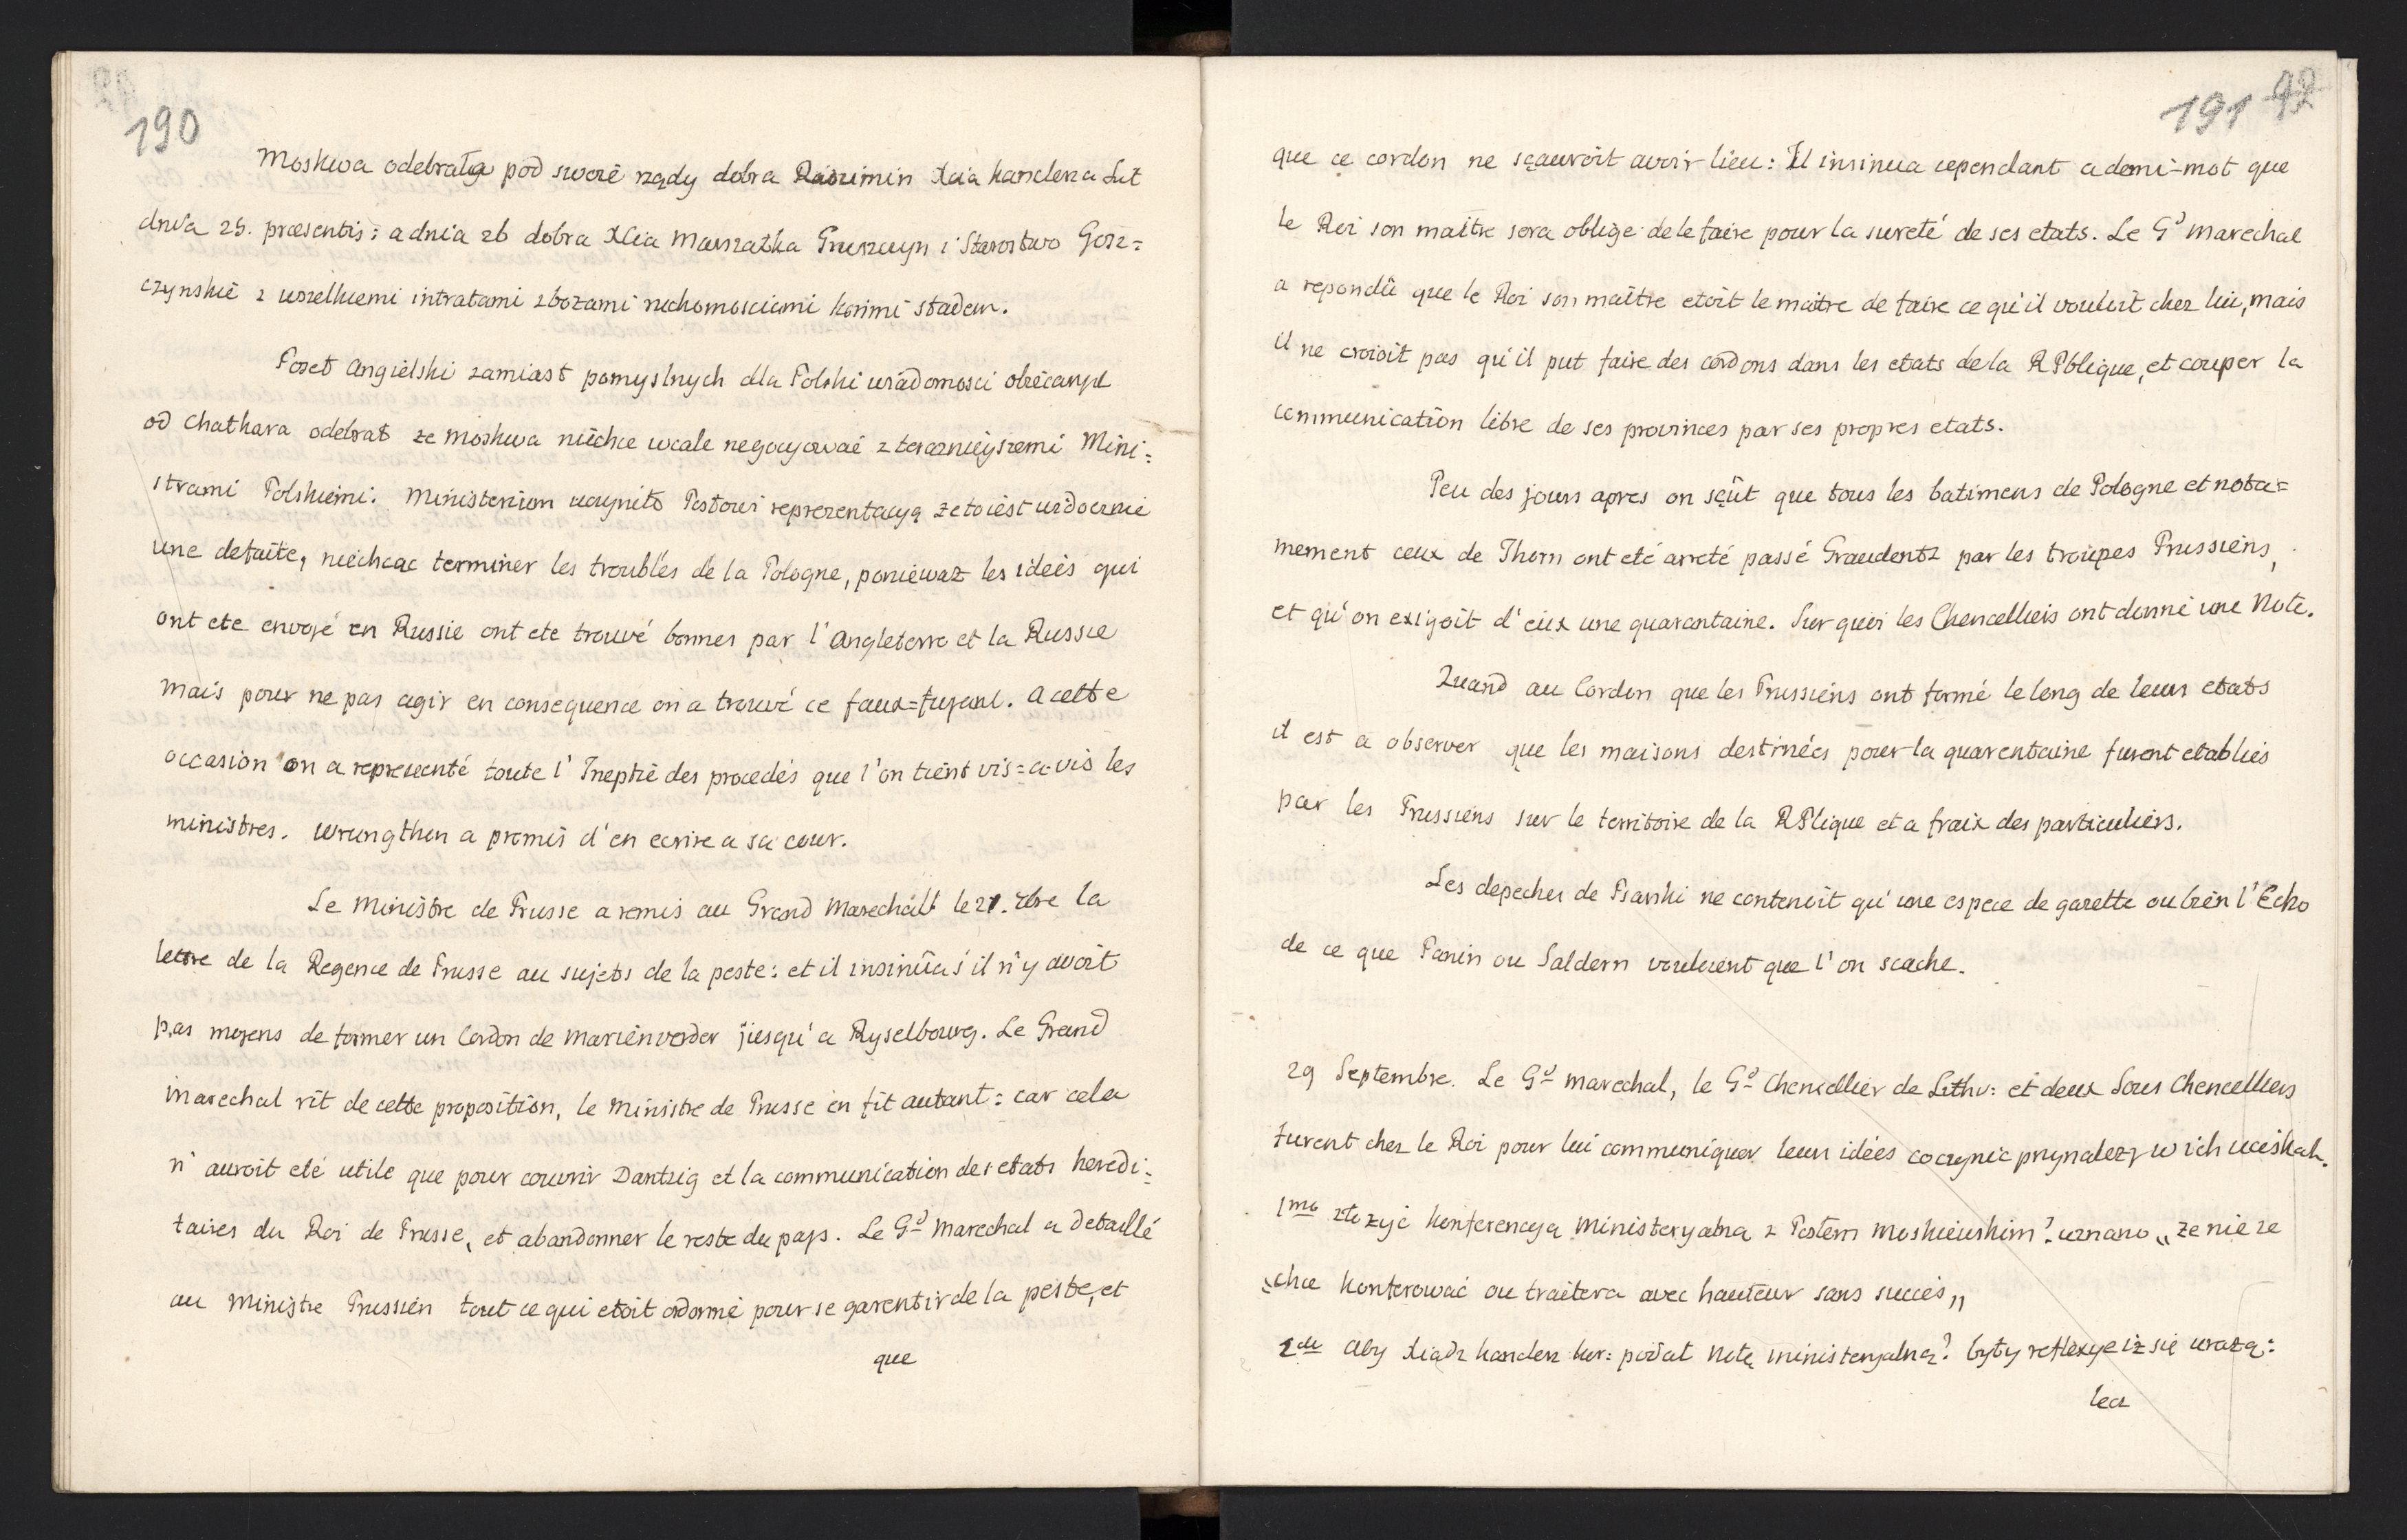 190
Moskwa odebrała pod swoie rządy dobra Radzimin Xcia kanclerza Lit
dnia 25. præsentis: a dnia 26 dobra Xcia Marszałka Gruszczyn i Starostwo Gosz=
czynskie z wszelkiemi intratami zbozami ruchomosciami konmi stadem.
Poseł Angielski zamiast pomyslnych dla Polski wiadomosci obiecanych
od Chathara odebrał ze Moskwa niechce wcale negocyowac z teraznieyszemi Mini=
strami Polskiemi. Ministerium uczyniło Posłowi reprezentacyą ze to iest widocznie
une defaite, niechcac terminer les troubles de la Pologne, poniewaz les idées qui
ont ete envoyé en Russie ont ete trouvé bonnes par l'Angleterre et la Russie
mais pour ne pas agir en consequence on a trouvé ce faux=fuyant. A cette
occasion on a representé toute l'Ineptie des procedés que l'on tient vis=a-vis les
ministres. Wrungthon a promis d'en ecrire a sa cour.
Le Ministre de Prusse a remis au Grand Marechall le 21. 7bre la
lettre de la Regence de Prusse au sujets de la peste: et il insinûa s'il n'y avoit
pas moyens de former un Cordon de Marienverder jusqu'a Ryselbourg. Le Grand
marechal rit de cette proposition, le Ministre de Prusse en fit autant: car cela
n'auroit eté utile que pour couvrir Dantzig et la communication des etats heredi=
taires du Roi de Prusse, et abandonner le reste du pays. Le Gd Marechal a detaillé
au Ministre Prussien tout ce qui etoit ordonné pour se garentir de la peste, et
que
191 92
que ce cordon ne sçauroit avoir lieu: Il insinua cependant a demi-mot que
le Roi son maitre sera oblige de le faire pour la sureté de ses etats. Le Gd marechal
a repondû que le Roi son maître etoit le maitre de faire ce qu'il vouloit chez lui, mais
il ne croioit pas qu'il put faire des cordons dans les etats de la RPblique, et couper la
communication libre de ses provinces par ses propres etats.
Peu des jours apres on sçût que tous les batimens de Pologne et nota=
mement ceux de Thorn ont eté arreté passé Graudentz par les troupes Prussiens,
et qu'on exigoit d'eux une quarantaine. Sur quoi les Chencelliers ont donné une Note.
Quand au Cordon que les Prussiens ont formé le long de leurs etats
il est a observer que les maisons destinées pour la quarentaine furent etablies
par les Prussiens sur le territoire de la RPlique et a fraix des particuliers.
Les depeches de Psarski ne contenoit qu'une espece de gazette ou bien l'Echo
de ce que Panin ou Saldern vouloient que l'on scache.
29 Septembre. Le Gd marechal, le Gd Chencellier de Lithu: et deux Sous Chencelliers
furent chez le Roi pour lui communiquer leurs idées co czynic przynalezy w ich uciskach.
1mo złozyć konferencya Ministeryalna z Posłem Moskiewskim? uznano „ze nie ze
„chce konferować ou traitera avec hauteur sans succès„
2do Aby Xiądz kanclerz kor: podał notę ministeryalną? były reflexye iz się urazą:
lecz